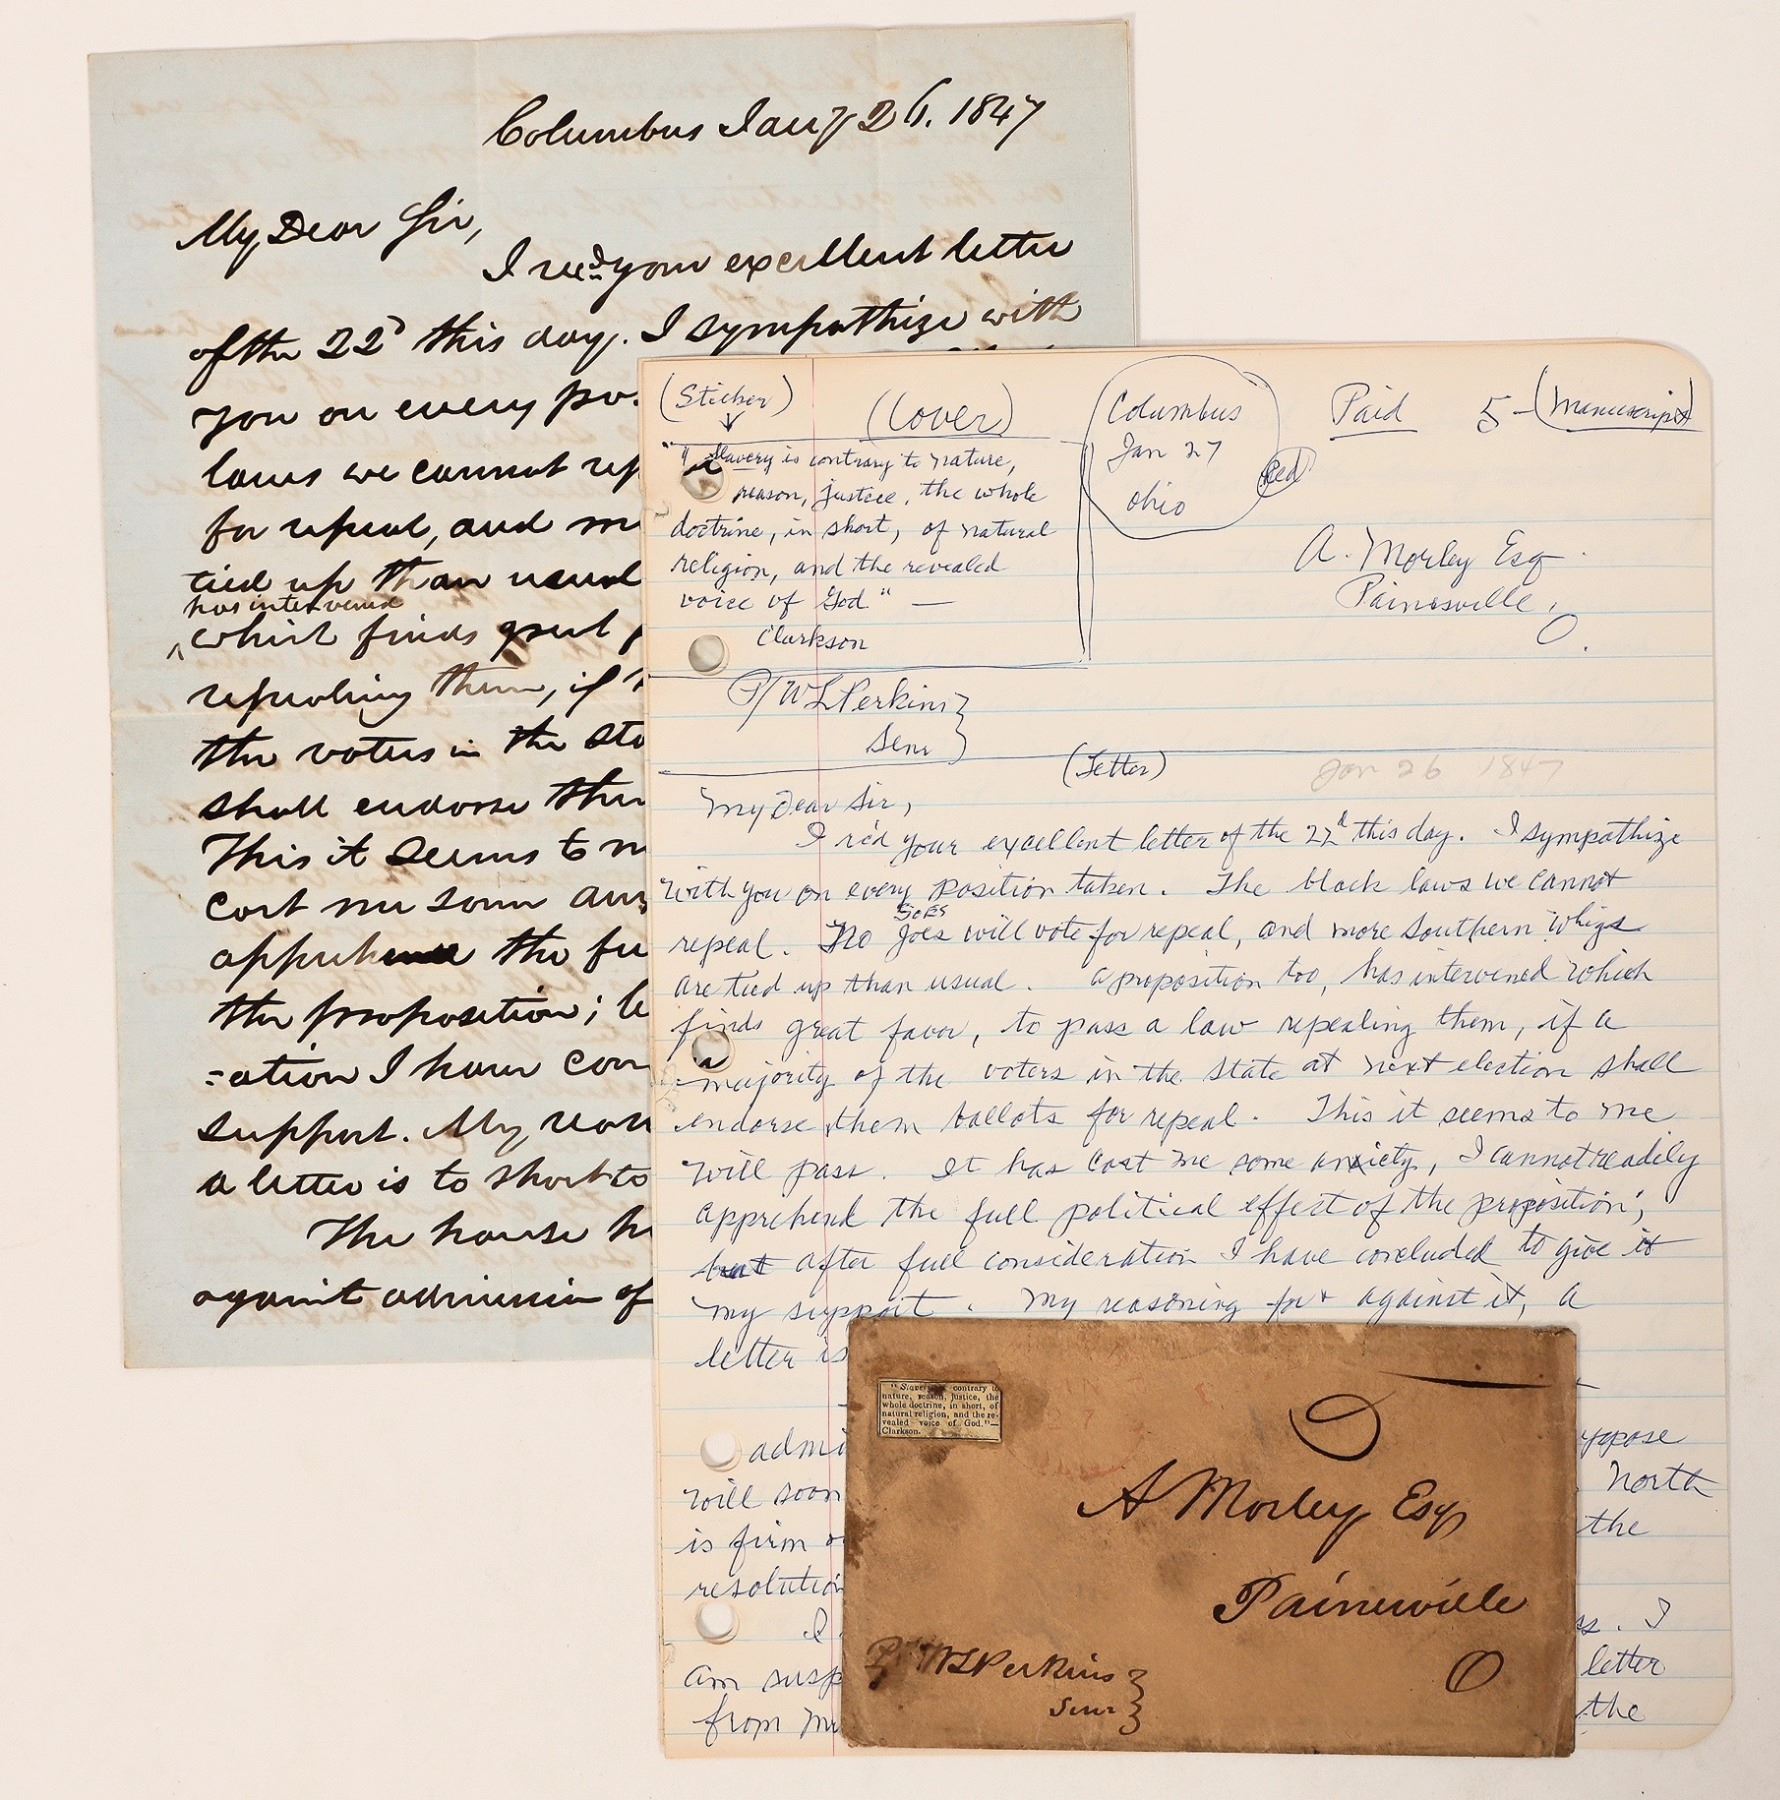 Columbus Jany 26. 1847
My Dear Sir,
I recd your excellent letter
of the 22d this day. I sympathize with
you on every po
laws we cannot rep
for repeal, and m
tied up than usual
has intervened
^ which finds great
repealing them, if
the voters in the sta
shall endorse the
This it seems to m
cost me some anx
apprehend the fu
the proposition; b
=ation I have con
support. My reas
a letter is to short to
The house h
against admission of
(Sticker)
(Cover)
"Slavery is contrary to nature,
reason, justice, the whole
doctrine, in short, of natural
religion, and the revealed
voice of God" —
Clarkson
Columbus
Jan 27
Ohio
Red
Paid 5 - (manuscript)
A. Morley Esq
Painesville,
O.
P/ W L Perkins }
Senr }
(Letter) Jan 26 1847
My Dear Sir,
I rec'd your excellent letter of the 22d this day. I sympathize
with you on every position taken. The black laws we cannot
repeal. No Joes will vote for repeal, and more Southern Whigs
are tied up than usual. A proposition too, has intervened which
finds great favor, to pass a law repealing them, if a
majority of the voters in the state at next election shall
endorse them ballots for repeal. This it seems to me
will pass. It has cost me some anxiety, I cannot readily
apprehend the full political effect of the proposition;
but after full consideration I have concluded to give it
my support. My reasoning for + against it, a
letter is
admi
ppose
will soon
North
is firm o
the
resolution
I
ss. I
am susp
letter
from m
the
"Slavery is contrary to
nature, reason, justice, the
whole doctrine, in short, of
natural religion, and the re-
vealed voice of God."—
Clarkson.
A Morley Esq
Painesville
O
P/ W L Perkins }
Senr }